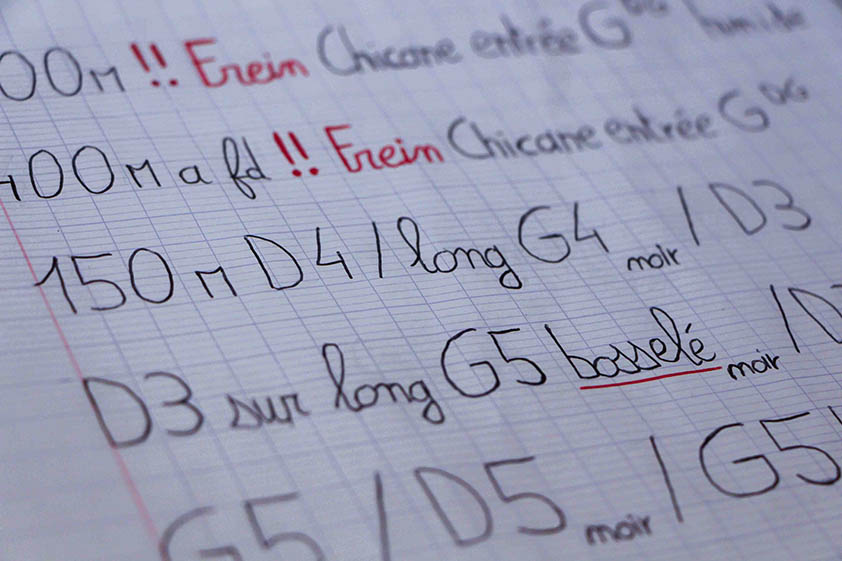 00m !! Frein Chicane entrée G DG humide
400m a fd !! Frein Chicane entrée G DG
150m D4 / long G4 noir / D3
D3 sur long G5 bosselé noir / D
G5 / D5 noir / G5